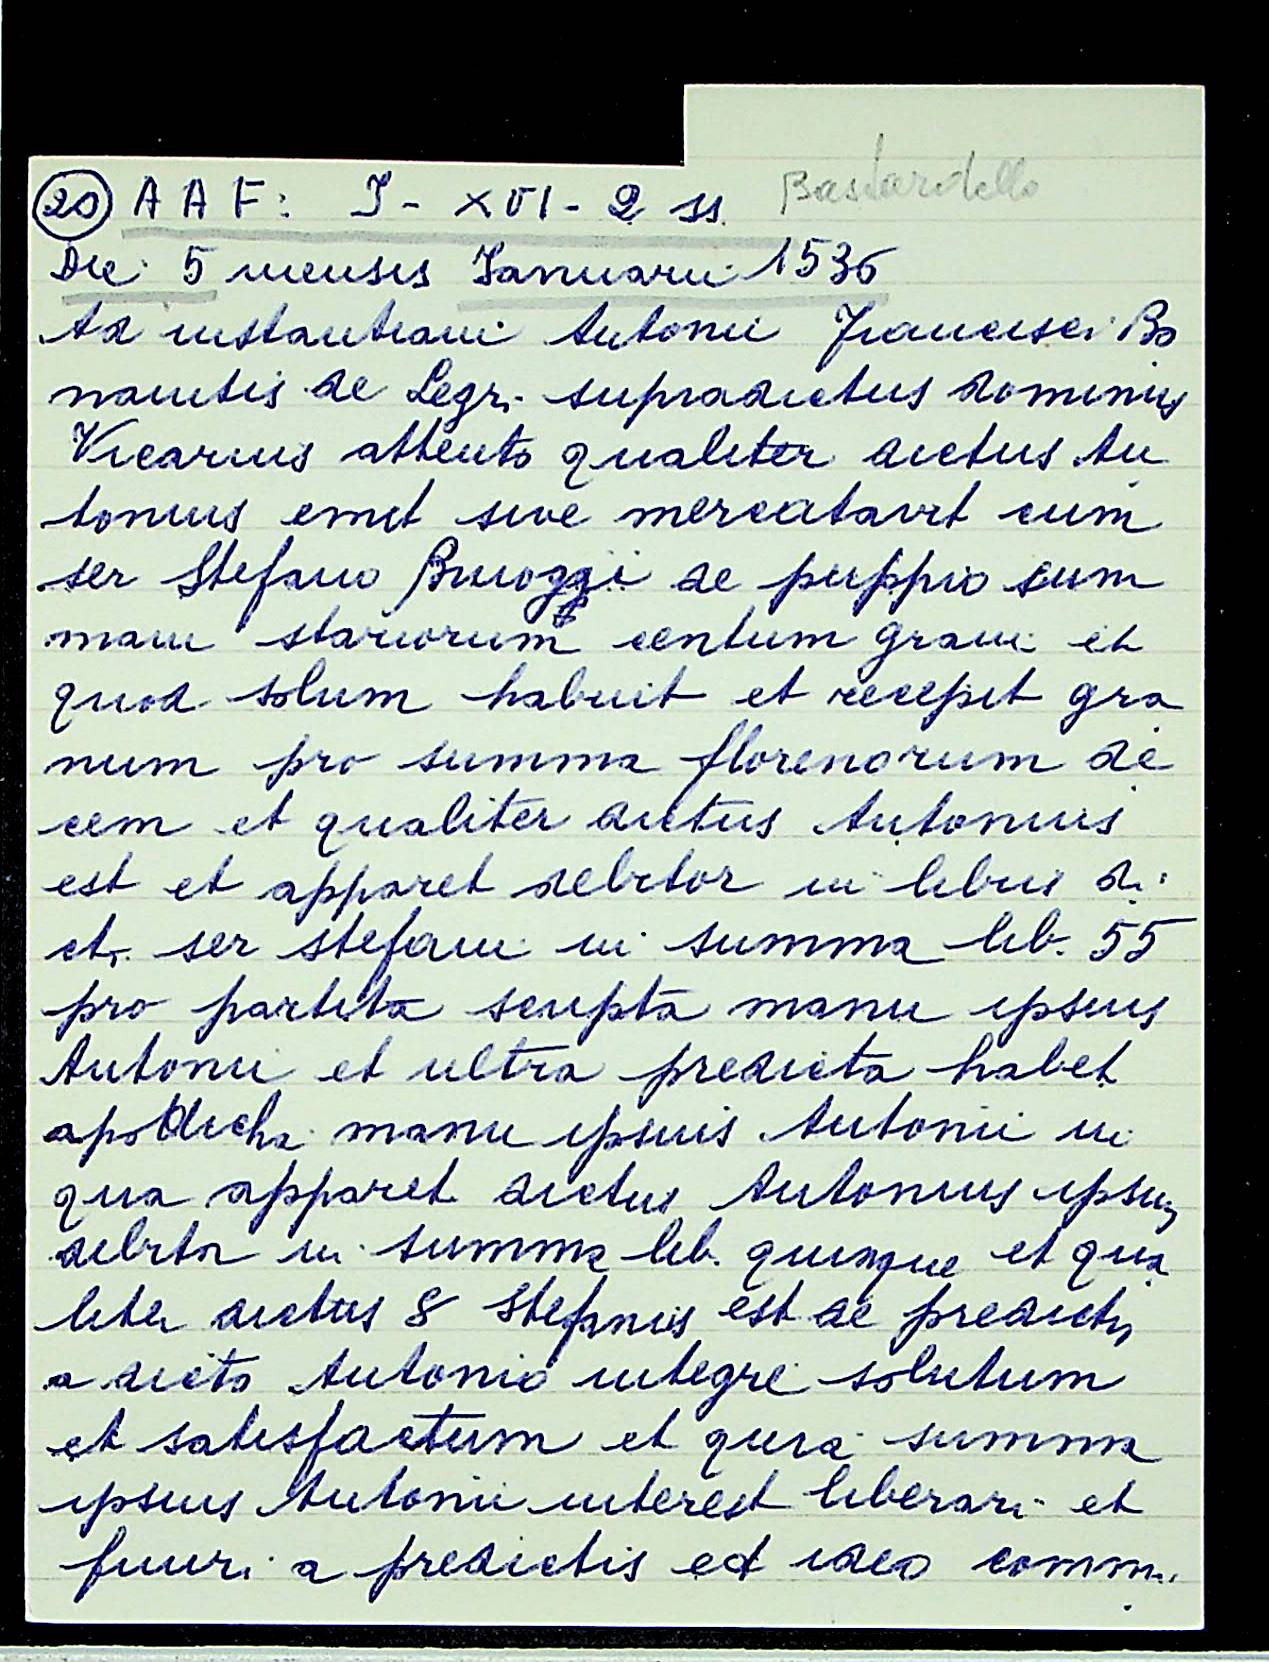 Bastardello
20 A A F: I - XVI - 2 ss.
Die 5 mensis Ianuarii 1536
Ad instantiam Antonii Francisci Bo
namitis de Legr. supradictus dominus
Vicarius attento qualiter dictus An
tonius emit sive mercatavit cum
ser Stefano de puppio sum
mam stariorum centum grani et
quod solum habuit et recepit gra
num pro summa florenorum de
cem et qualiter dictus Antonius
est et apparet debitor in libris di
cti ser stefani in summa lib. 55
pro partita scripta manu ipsius
Antonii et ultra predicta habet
apodicha manu ipsius Antonii in
qua apparet dictus Antonius ipsius
debitor in summa lib. quinque et qua
liter dictus S Stefanus est de predictis
a dicto Antonio integre solutum
et satisfactum et quia summa
ipsius Antonii interest liberari et
finiri a predictis et ideo comm.